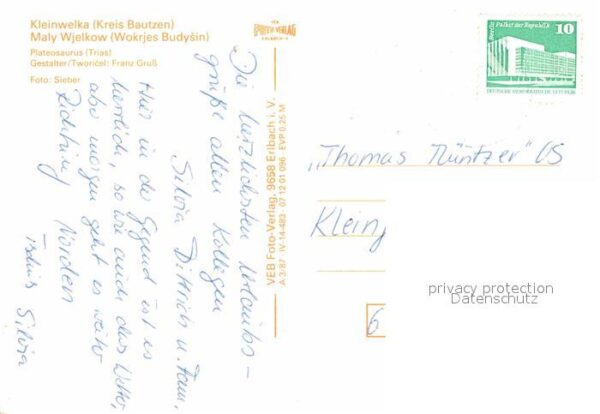 Kleinwelka (Kreis Bautzen)
Maly Wjelkow (Wokrjes Budyšin)
Plateosaurus (Trias)
Gestalter/Tworićel: Franz Gruß
Foto: Sieber
Die herzlichsten Urlaubs-
grüße allen Kollegen
Silvia Dittrich u. Fam.
Hier in der Gegend ist es
herrlich, so wie auch das Wetter,
also morgen geht es weiter
Richtung Norden
Tschüs Silvia
VEB Foto-Verlag, 9658 Erlbach i. V.
A 3/87 IV-14-483 · 07 12 01 096 EVP 0,25 M
Berlin, Palast der Republik
10
DEUTSCHE DEMOKRATISCHE REPUBLIK
„Thomas Müntzer" OS
Klein
6
privacy protection
Datenschutz